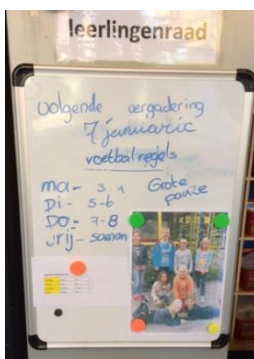 leerlingenraad
volgende vergadering
7 januari
voetbalregels
ma - 3-4 Grote
Di - 5-6 pauze
Do - 7-8
Vrij - saman